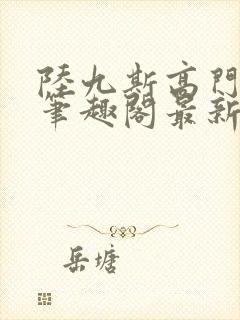 陸九斯高門
筆趣閣最新
岳塘